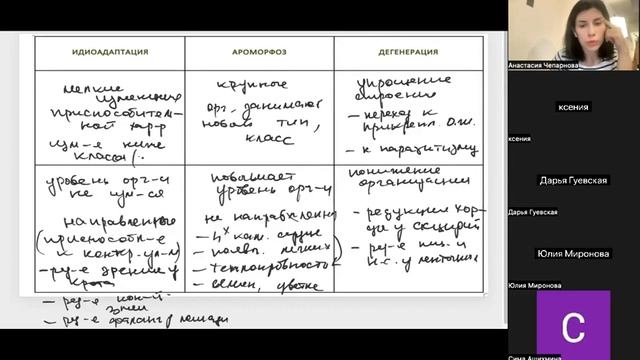 ИДИОАДАПТАЦИЯ
АРОМОРФОЗ
ДЕГЕНЕРАЦИЯ
мелкие
приспособитель-
ной хар-р
изм-е ниже
класса
крупные
орг. занимают
новый тип,
класс
упрощение
строения
- переход к
прикрепл. о.ж.
- к паразитизму
уровень орг-и
не изм-ся
направленные
(приспособл-е
- ред-е зрения у
крота
- ред-е
змеи
- ред-е фаланг у лошади
повышает
уровень орг-и
не направленны
- 4х кам. сердце
- появл. легких
- теплокровность
- семян, цветке
понижение
организации
- редукция хор-
ды у асцидий
- ред-е пищ. и
н.с. у
Анастасия Чепарнова
ксения
ксения
Дарья Гуевская
Дарья Гуевская
Юлия Миронова
Юлия Миронова
С
Сима Ашихмина